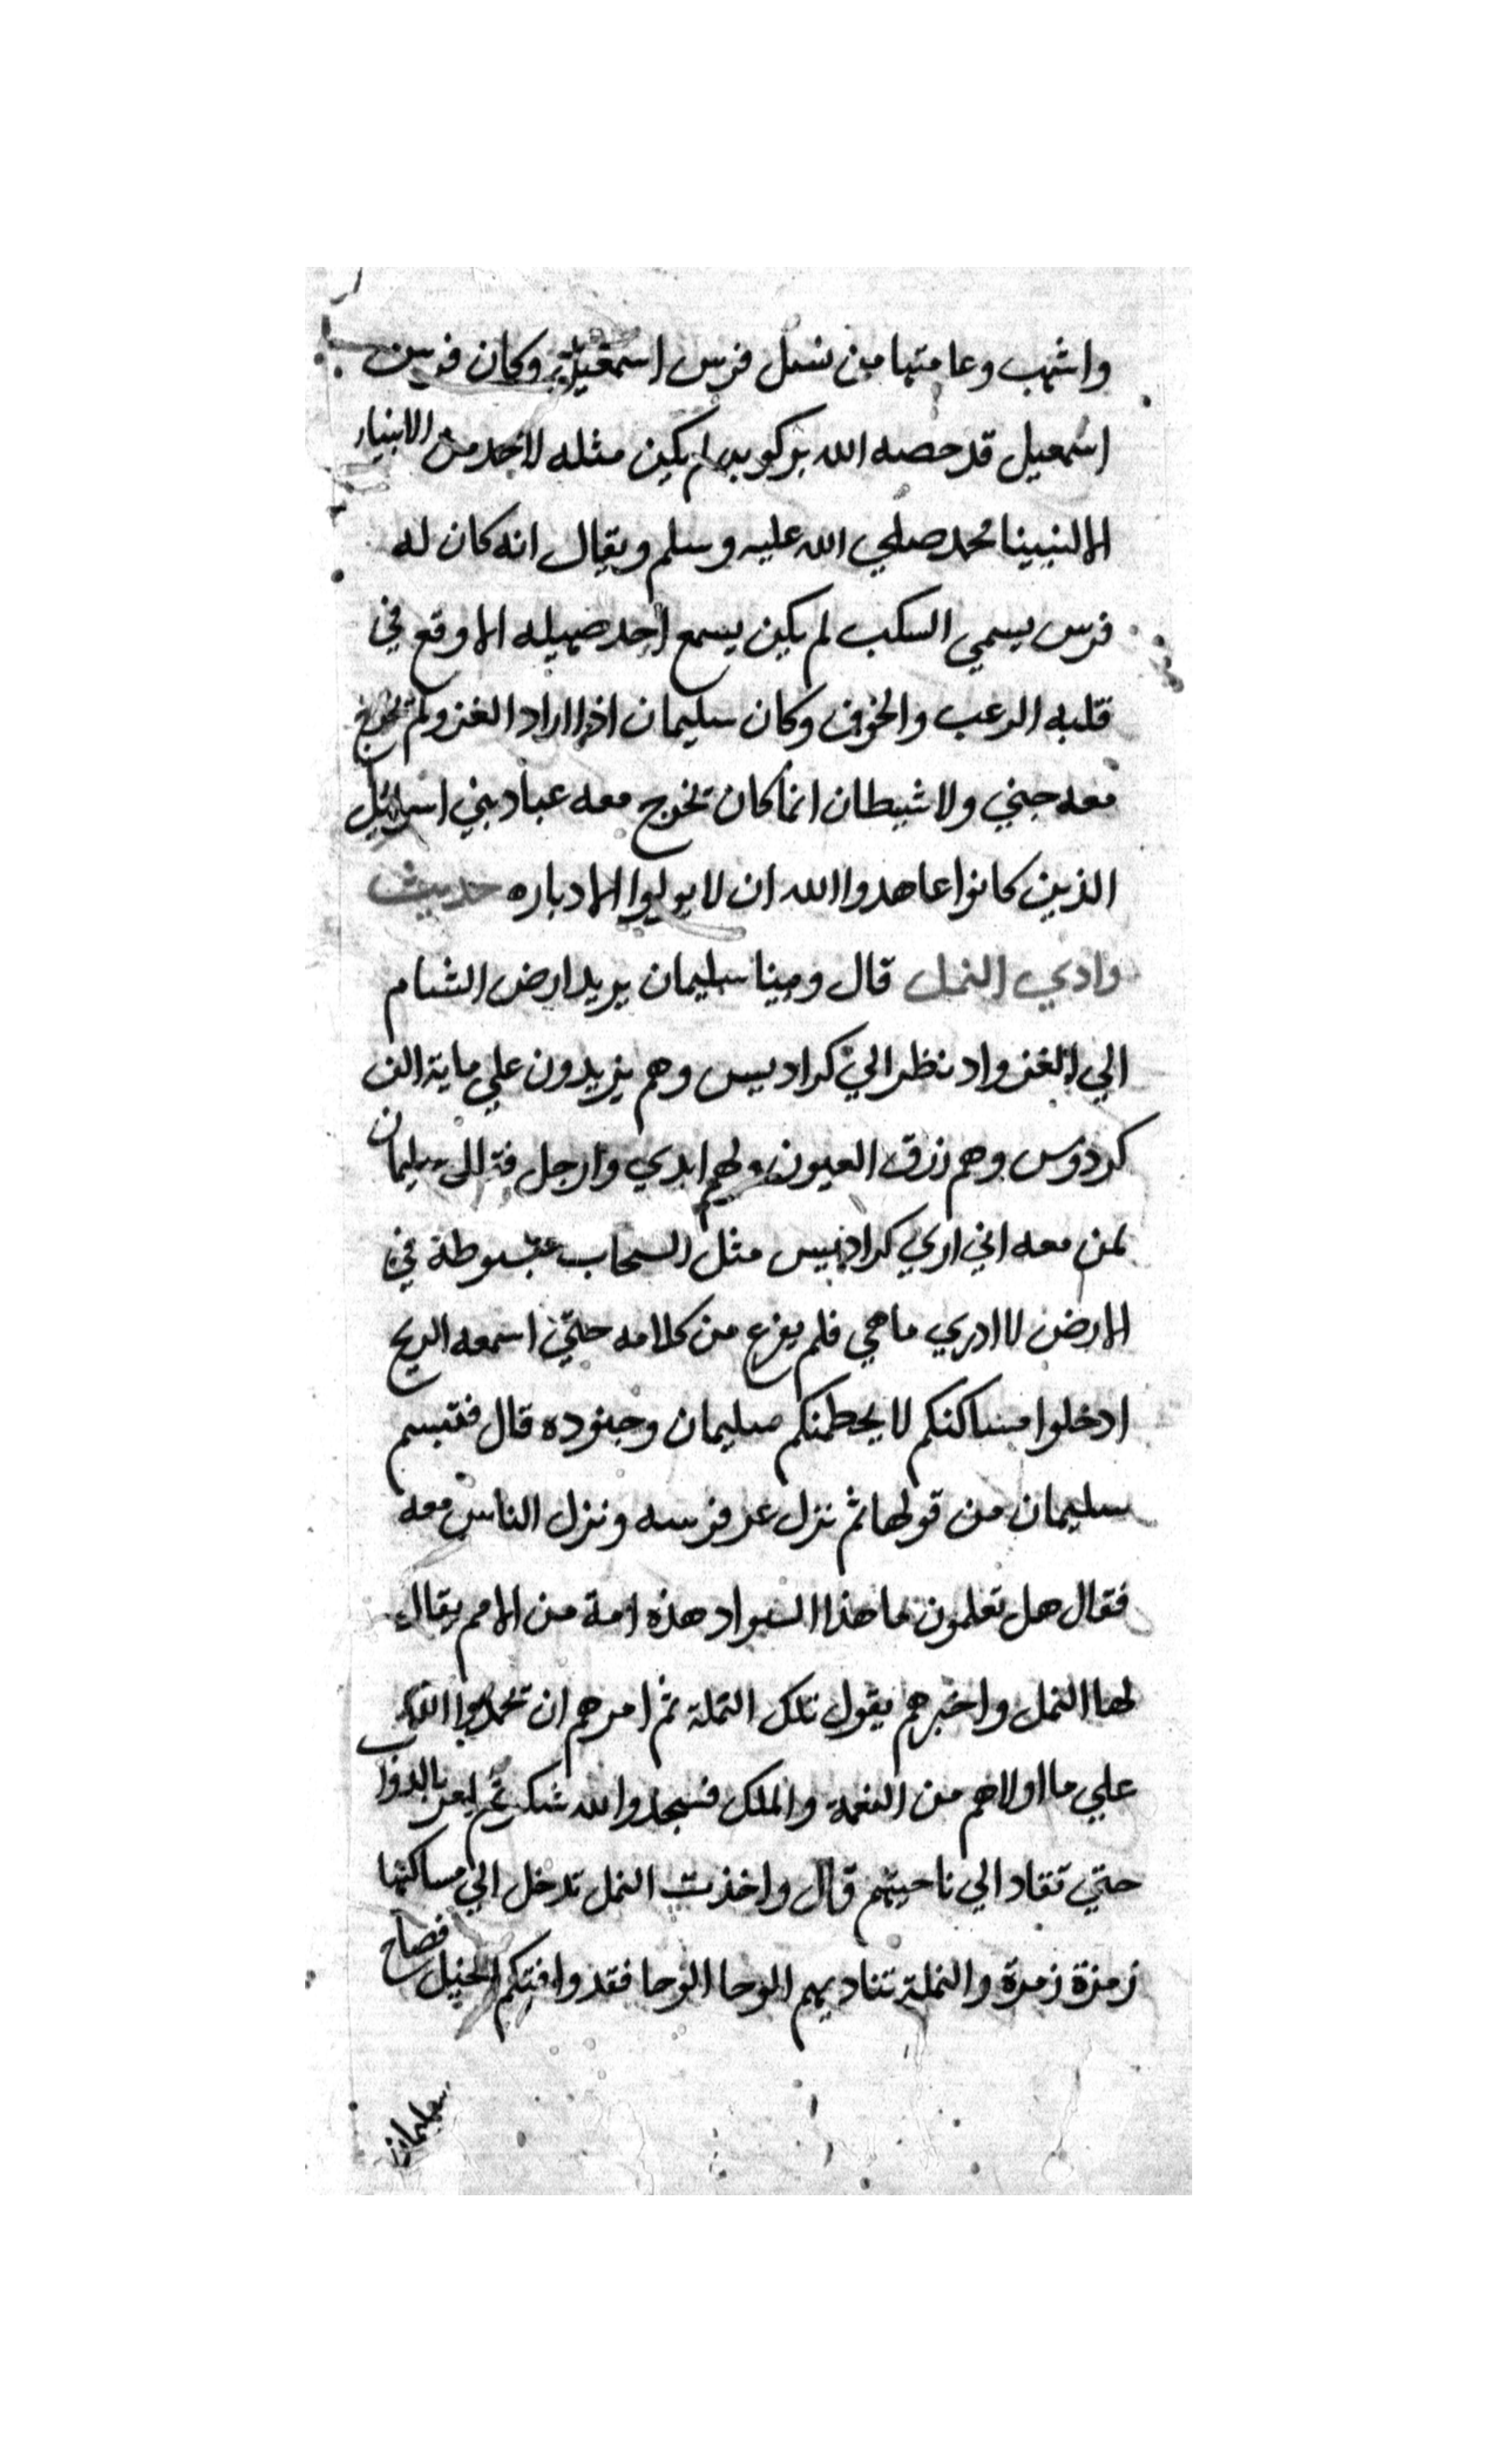 واشهب وعامتها من نسل فرس اسمعيل وكان فرس
اسمعيل قد خصه الله بركوبه لم يكن مثله لاحد من الانبياء
الا لنبينا محمد صلي الله عليه وسلم ويقال انه كان له
فرس يسمي السكب لم يكن يسمع احد صهيله الا وقع في
قلبه الرعب والخوف وكان سليمان اذا اراد الغزو لم تخرج
معه جني ولا شيطان انما كان تخرج معه عباد بني اسرائيل
الذين كانوا عاهدوا الله ان لا يولوا الادباره حديث
وادي النمل قال وبينا سليمان يريد ارض الشام
الي الغزو اد نظر الي كراديس وهم يزيدون علي ماية الف
كردوس وهم زرق العيون ولهم ايدي وارجل سليمان
لمن معه اني اري كراديس مثل السحاب مبسوطة في
الارض لا ادري ما هي فلم يفرغ من كلامه حتي اسمعه الريح
ادخلوا مساكنكم لا يحطمنكم سليمان وجنوده قال فتبسم
سليمان من قولها ثم نزل عن فرسه ونزل الناس معه
فقال هل تعلمون ما هذا السواد هذه امة من الامم يقال
لها النمل واخبرهم بقول تلك النملة ثم امرهم ان تحمدوا الله
علي ما اولاهم من النعمة والملك فسجدوا لله شكر ثم بالدواب
حتي تقاد الي ناحيتهم قال واخذت النمل تدخل الي مساكنها
زمرة زمرة والنملة تناديهم الوحا الوحا فقد وافتكم الخيل فصاح
سليمان